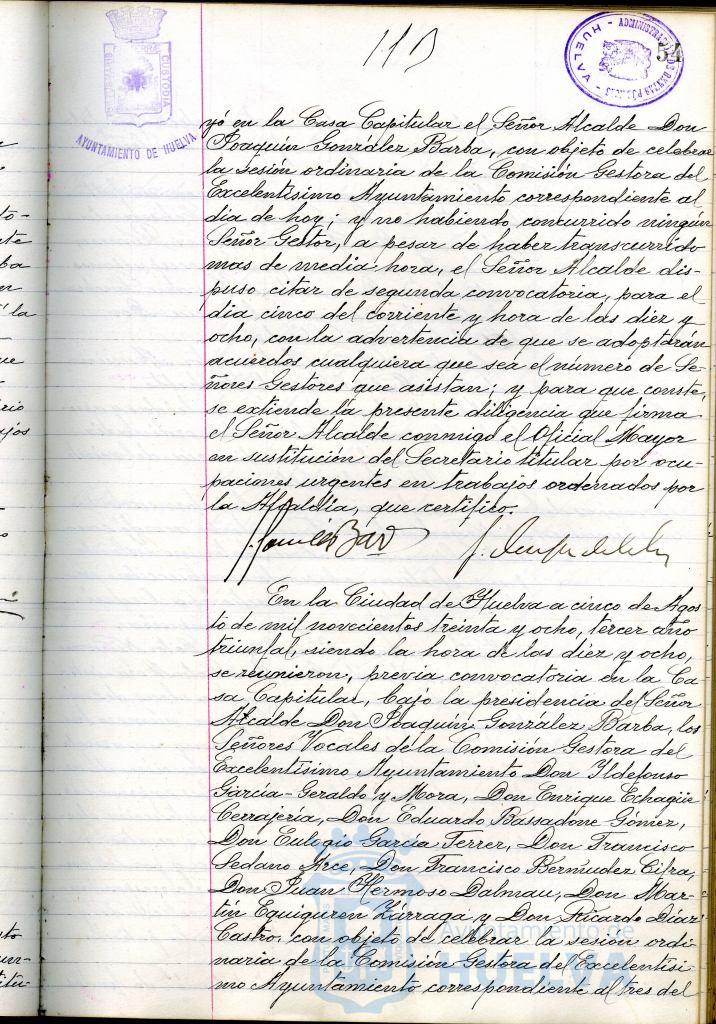 113
54
ADMINISTRACIÓN DE RENTAS PÚBLICAS - HUELVA -
CUSTODIA
AYUNTAMIENTO DE HUELVA
yó en la Casa Capitular el Señor Alcalde Don
Joaquín González Barba, con objeto de celebrar
la sesión ordinaria de la Comisión Gestora del
Excelentísimo Ayuntamiento correspondiente al
día de hoy; y no habiendo concurrido ningún
Señor Gestor, a pesar de haber transcurrido
mas de media hora, el Señor Alcalde dis-
puso citar de segunda convocatoria, para el
día cinco del corriente y hora de las diez y
ocho, con la advertencia de que se adoptarán
acuerdos cualquiera que sea el número de Se-
ñores Gestores que asistan; y para que conste,
se extiende la presente diligencia que firma
el Señor Alcalde conmigo el Oficial Mayor
en sustitución del Secretario titular por ocu-
paciones urgentes en trabajos ordenados por
la Alcaldía, que certifico.
En la Ciudad de Huelva a cinco de Agos
to de mil novecientos treinta y ocho, tercer año
triunfal, siendo la hora de las diez y ocho,
se reunieron, previa convocatoria en la Ca-
sa Capitular, bajo la presidencia del Señor
Alcalde Don Joaquín González Barba, los
Señores Vocales de la Comisión Gestora del
Excelentísimo Ayuntamiento Don Ildefonso
García-Geraldo y Mora, Don Enrique Echagüe
Cerrajería, Don Eduardo Bassadone Gómez,
Don Eulogio García Ferrer, Don Francisco
Sedano Arce, Don Francisco Bermudez Cifra,
Don Juan Hermoso Dalmau, Don Mar-
tín Equiguren Zárraga, y Don Ricardo Díaz
Castro, con objeto de celebrar la sesión ordi-
naria de la Comisión Gestora del Excelentísi-
mo Ayuntamiento correspondiente al tres del
Ayuntamiento de
HUELVA